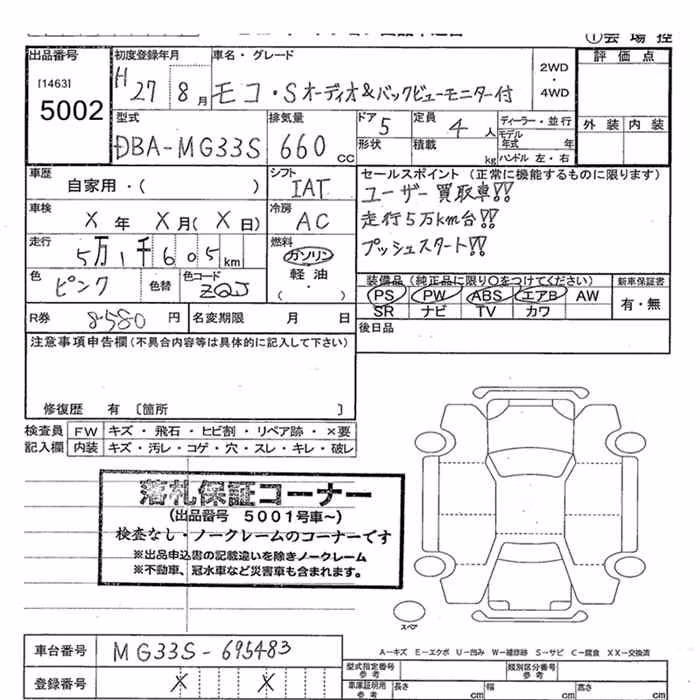 ①会 場 控
出品番号
[1463]
5002
初度登録年月
H27 8月
車名・グレード
モコ・S オーディオ&バックビューモニター付
2WD
・
4WD
評 価 点
外 装 内 装
型式
DBA-MG33S
排気量
660 cc
ドア 5
形状
定員 4 人
積載 kg
ディーラー・並行
モデル
年式 年
ハンドル 左・右
車歴
自家用・( )
シフト
IAT
セールスポイント (正常に機能するものに限ります)
ユーザー買取車!!
走行5万km台!!
プッシュスタート!!
車検
X 年 X 月( X 日)
冷房
AC
走行
5万1千605km
燃料
ガソリン
軽 油
( ・ )
色
ピンク
色替
色コード
ZQJ
装備品 (純正品に限り○をつけてください)
PS PW ABS エアB AW
SR ナビ TV カワ
新車保証書
有・無
R券 8,580 円
名変期限 月 日
後日品
注意事項申告欄 (不具合内容等は具体的に記入して下さい)
修復歴 有 〔箇所 〕
検査員 FW キズ・飛石・ヒビ割・リペア跡・×要
記入欄 内装 キズ・汚レ・コゲ・穴・スレ・キレ・破レ
落札保証コーナー
(出品番号 5001号車~)
検査なし・ノークレームのコーナーです
※出品申込書の記載違いを除きノークレーム
※不動車、冠水車など災害車も含まれます。
スペア
A-キズ E-エクボ U-凹み W-補修跡 S-サビ C-腐食 XX-交換済
車台番号 MG33S-695483
登録番号 X X
型式指定番号
参考
類別区分番号
参考
車庫証明用
参考
長さ cm
幅 cm
高さ cm